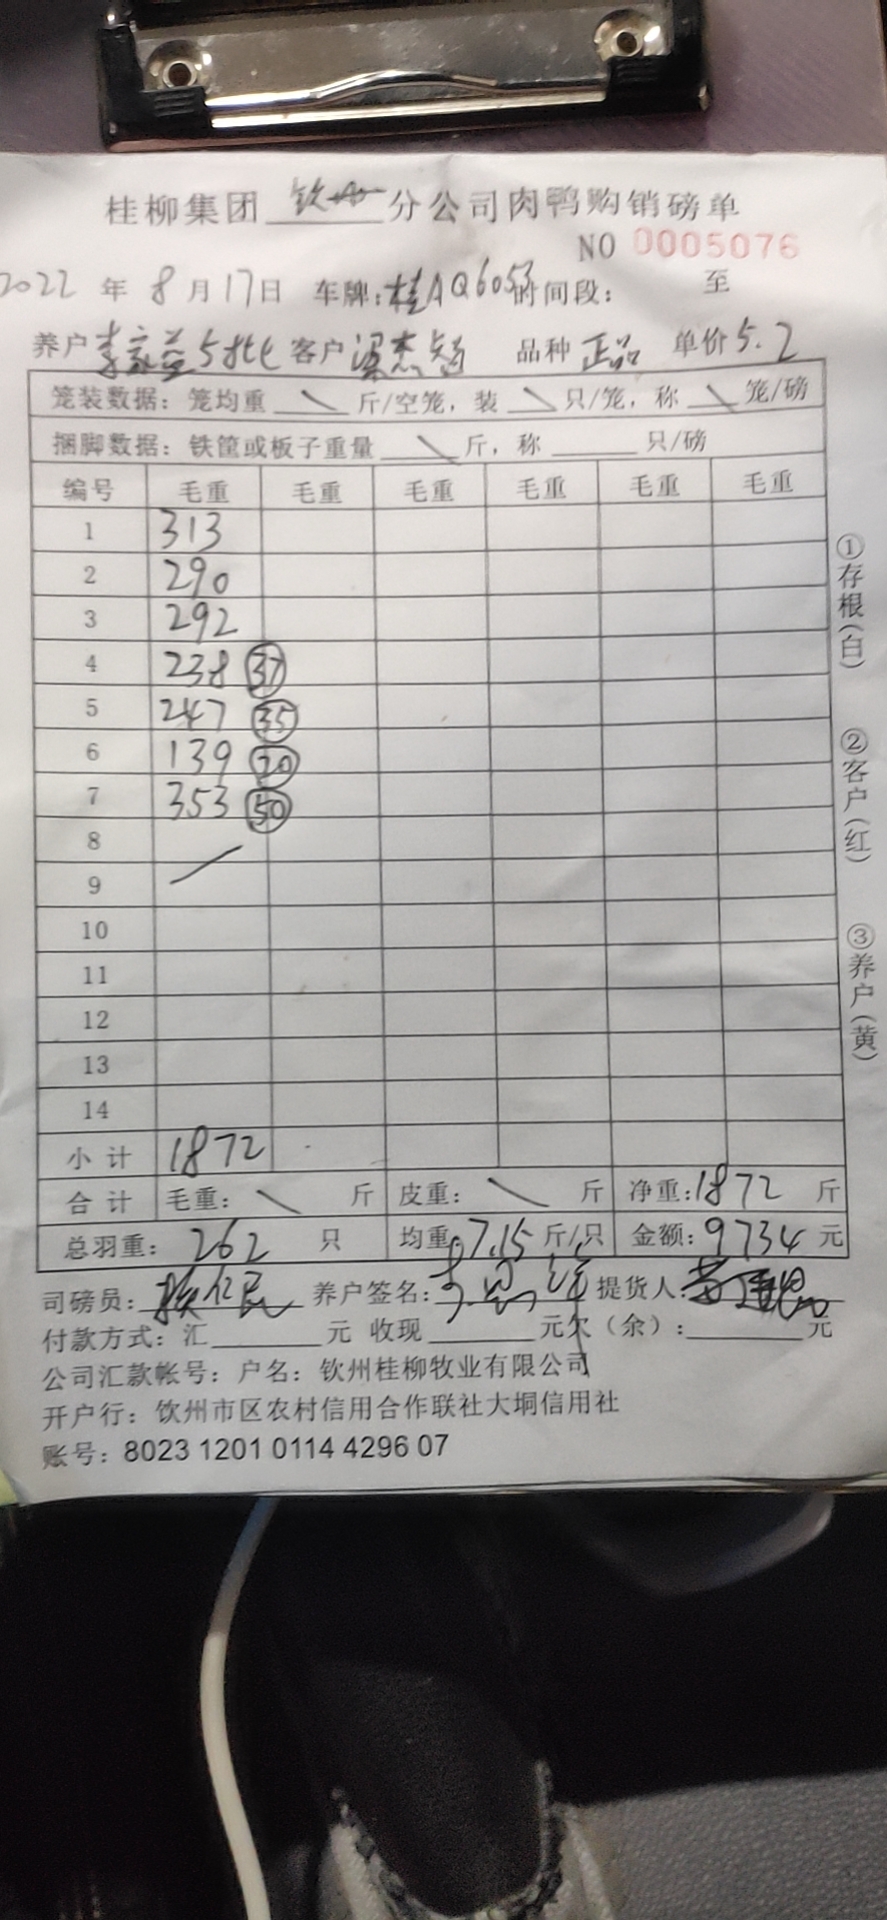 桂柳集团 钦州 分公司肉鸭购销磅单
NO 0005076
2022 年 8 月 17 日 车牌:桂AQ6053 时间段: 至
养户 李家益5批 客户 梁杰 品种 正品 单价 5.2
笼装数据:笼均重 \ 斤/空笼,装 \ 只/笼,称 \ 笼/磅
捆脚数据:铁筐或板子重量 \ 斤,称 只/磅
编号 毛重 毛重 毛重 毛重 毛重 毛重
1 313
2 290
3 292
4 238 37
5 247 35
6 139 20
7 353 50
8
9
10
11
12
13
14
小计 1872
合计 毛重: \ 斤 皮重: \ 斤 净重:1872 斤
总羽重: 262 只 均重:7.15 斤/只 金额:9734 元
司磅员: 养户签名: 提货人:
付款方式:汇 元 收现 元欠(余): 元
公司汇款帐号:户名:钦州桂柳牧业有限公司
开户行:钦州市区农村信用合作联社大垌信用社
账号:8023 1201 0114 4296 07
①存根(白)
②客户(红)
③养户(黄)